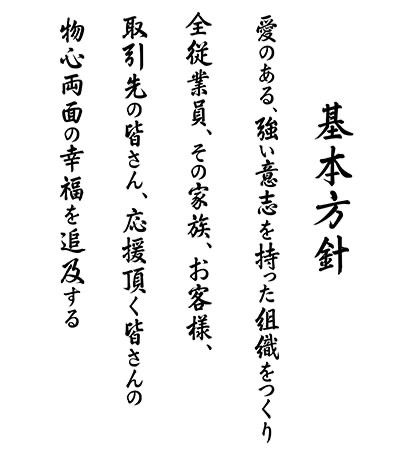 基本方針
愛のある、強い意志を持った組織をつくり
全従業員、その家族、お客様、
取引先の皆さん、応援頂く皆さんの
物心両面の幸福を追及する